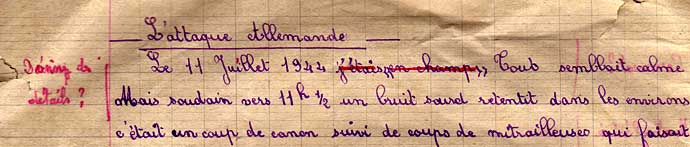 L'attaque Allemande
Le 11 Juillet 1944 j'étais en champs,, Tout semblait calme
Mais soudain vers 11h 1/2 un bruit sourd retentit dans les environs
c'était un coup de canon suivi de coups de mitrailleuses qui faisait
détails ?